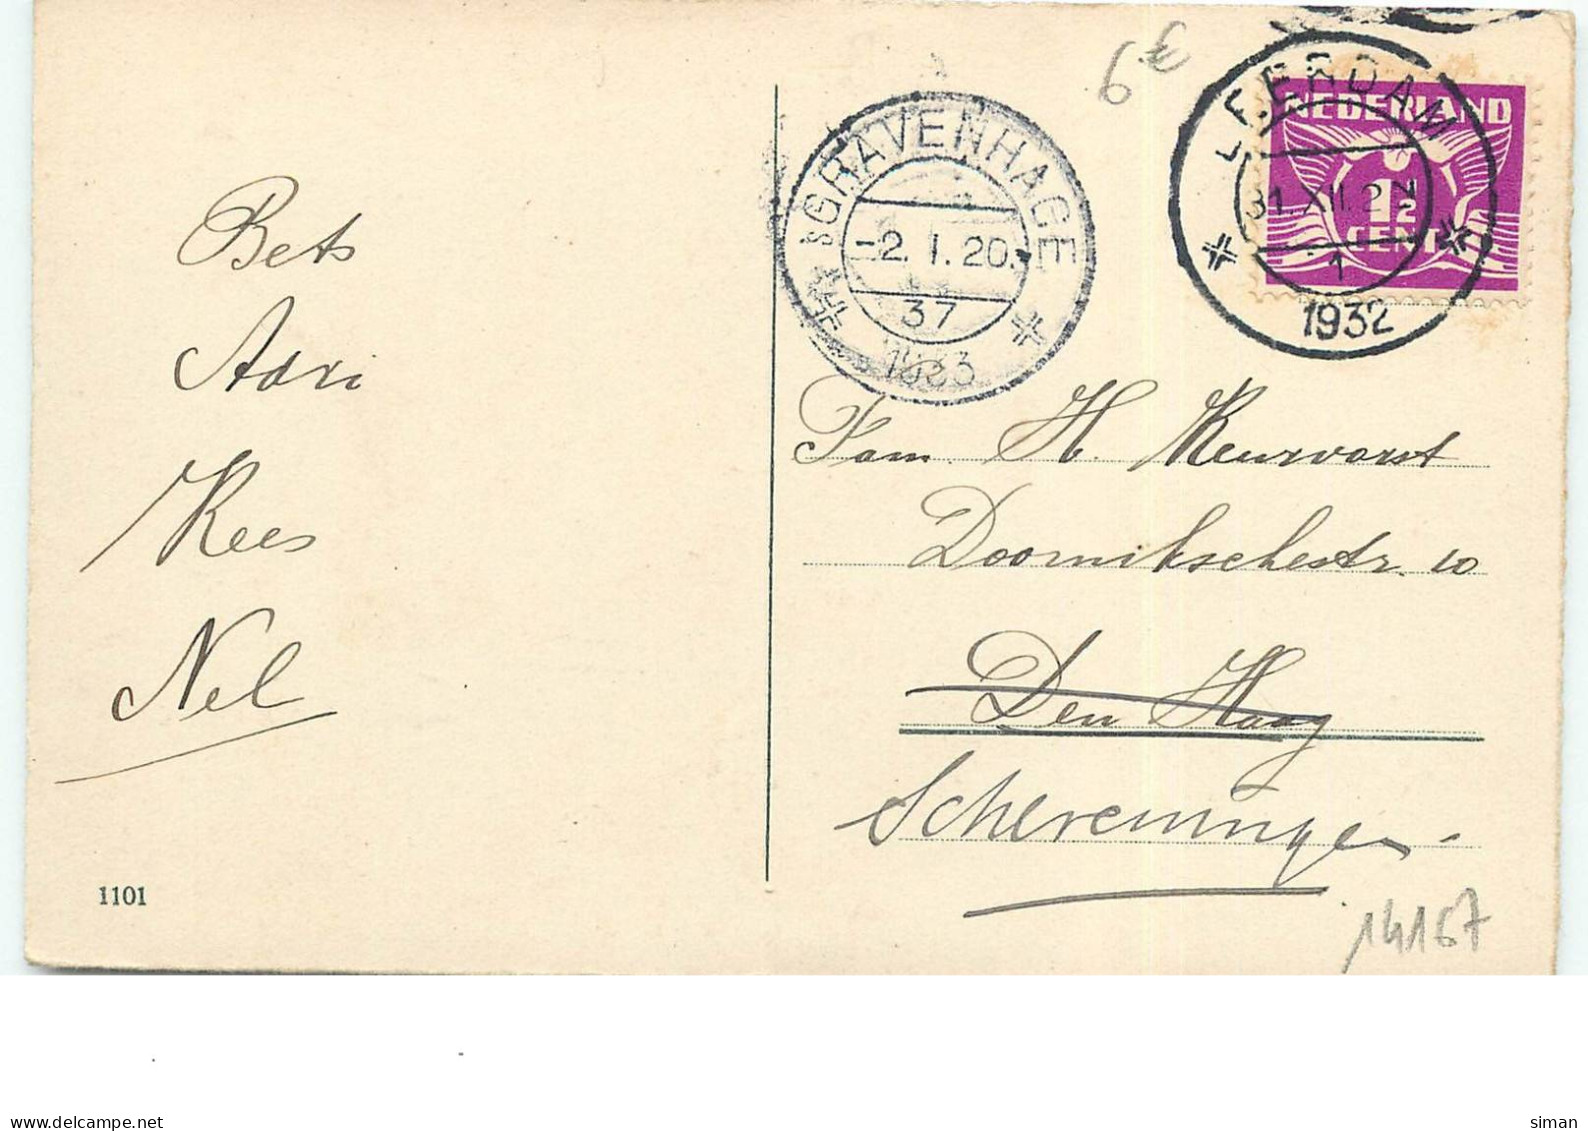 Bets
Adri
Kees
Nel
1101
'SGRAVENHAGE
-2. I. 20.-
37
1933
LEERDAM
31.XII.2 N
1
1932
NEDERLAND
1½
CENT
Fam. H. Keurvorst
Doornikschestr. 10
Den Haag
Scheveningen
14167
siman